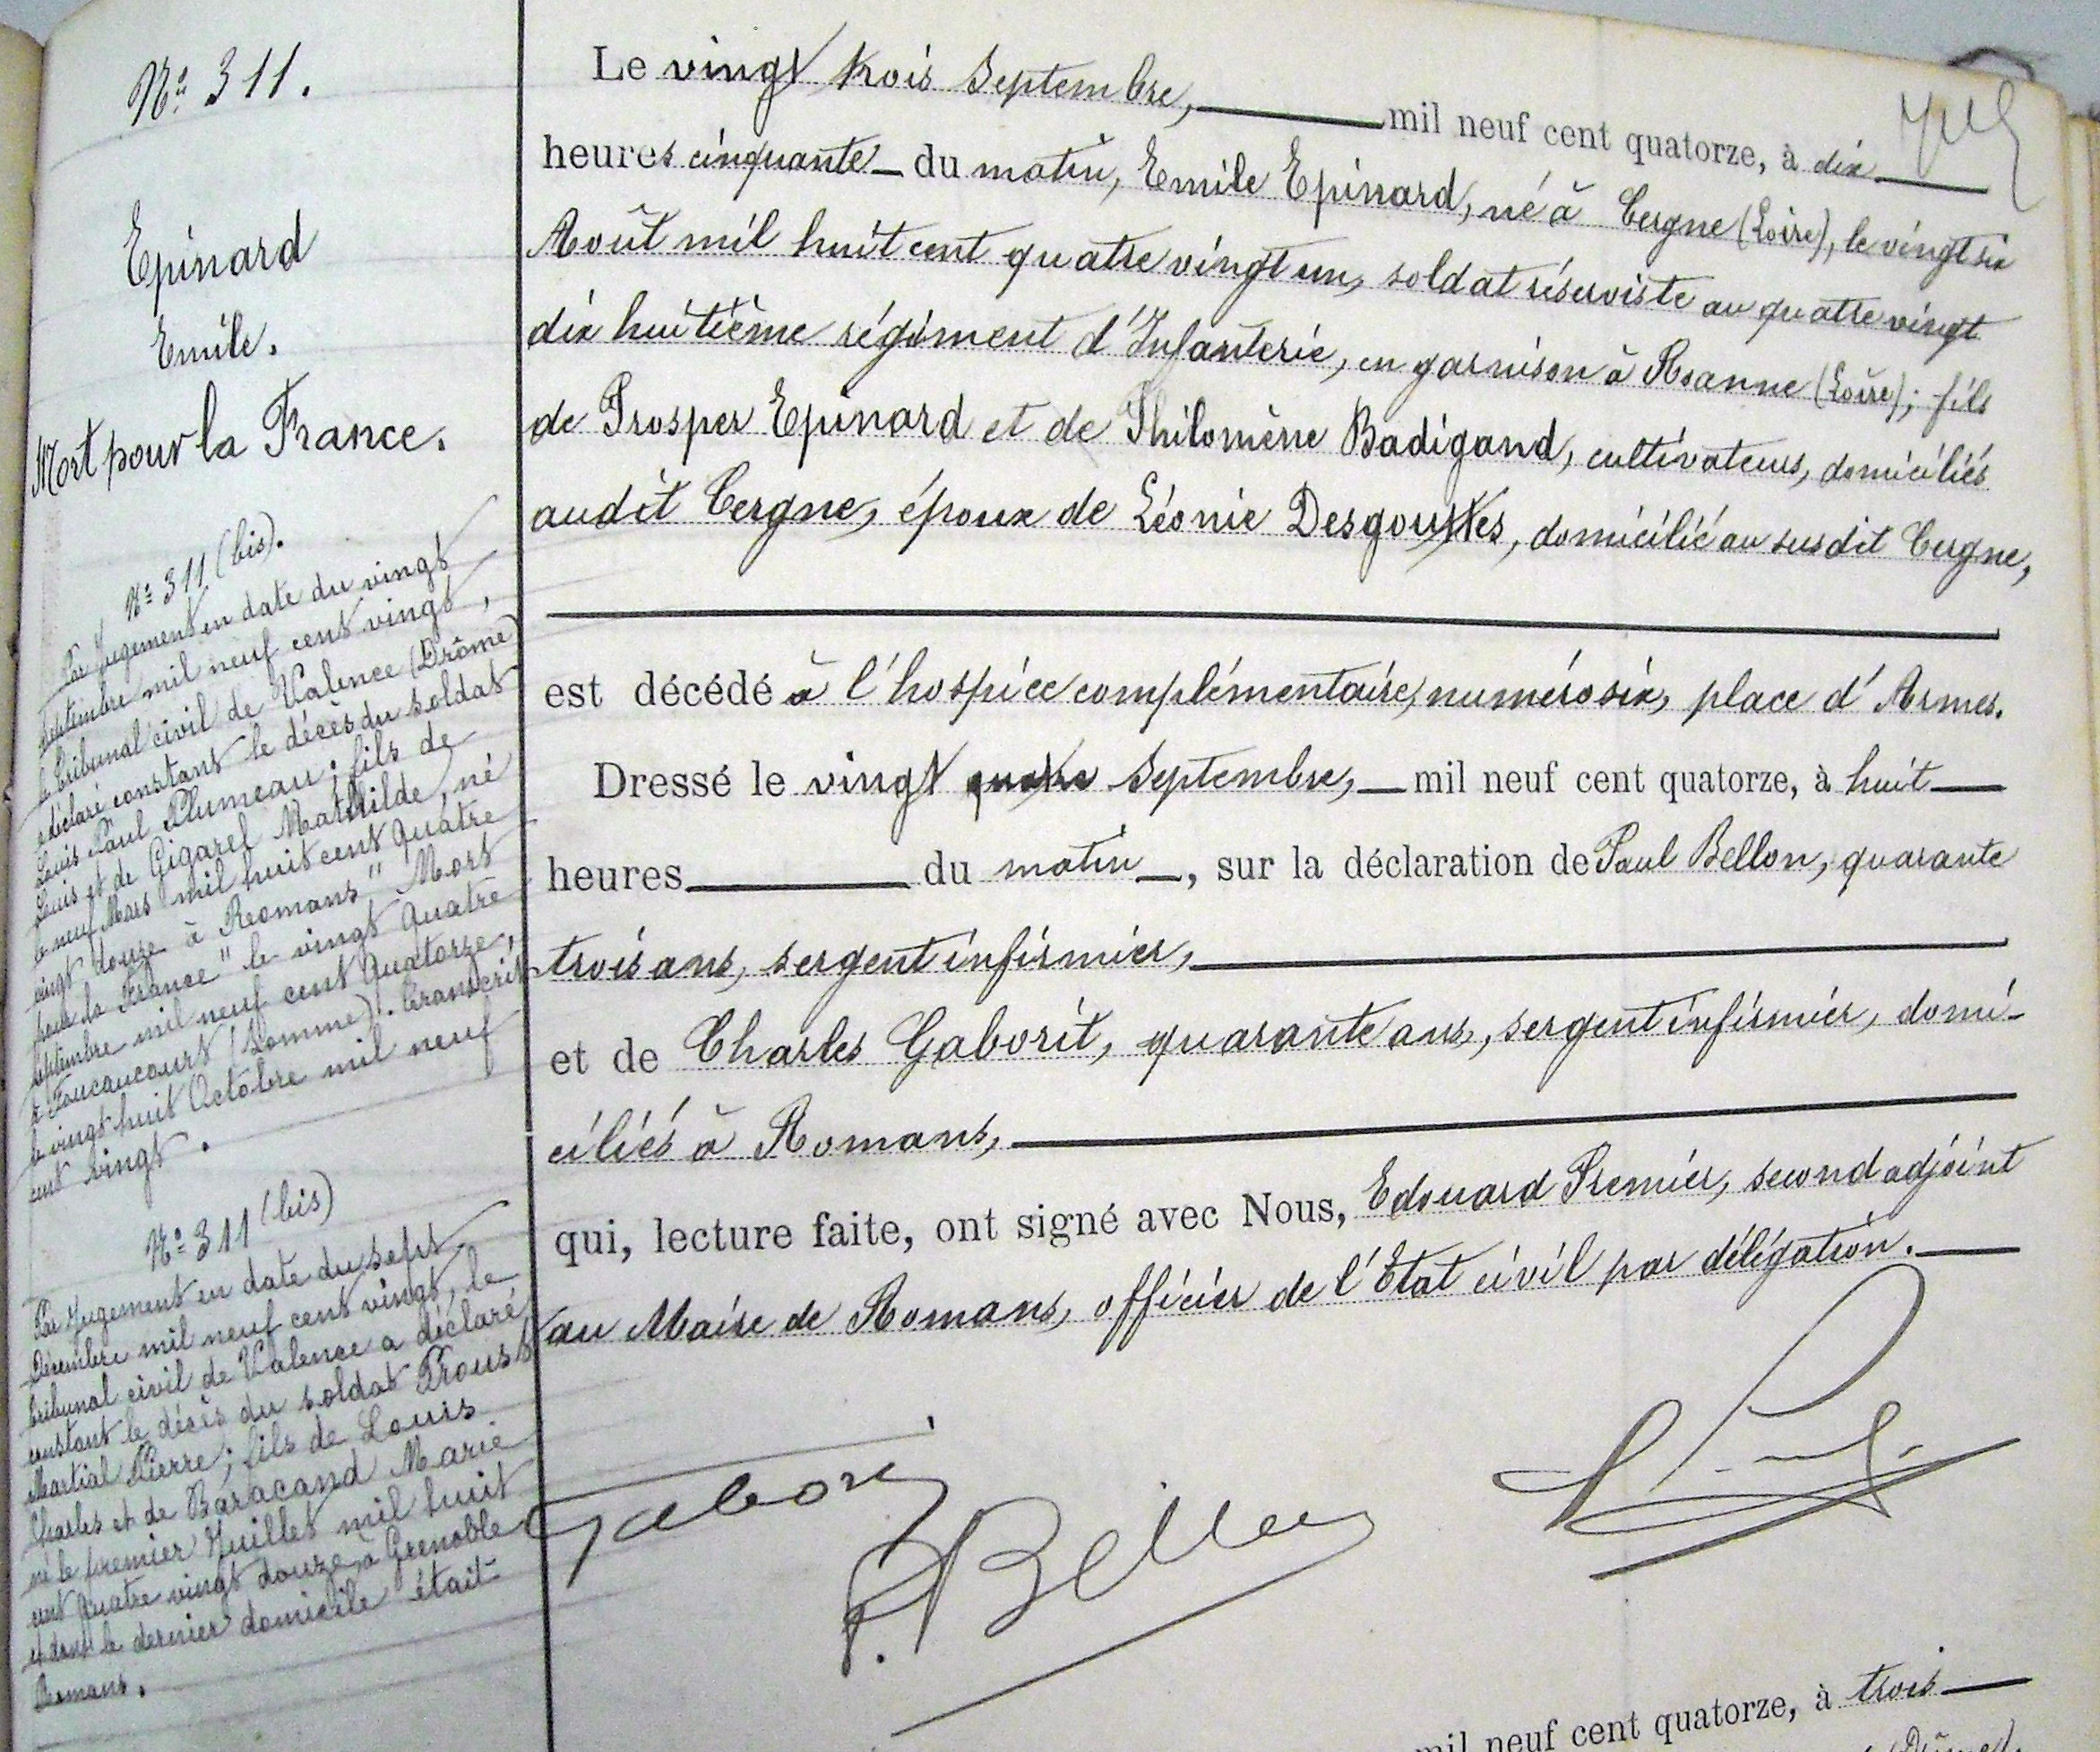 N° 311.
Epinard
Emile.
Mort pour la France.
N° 311 (bis).
Par Jugement en date du vingt
septembre mil neuf cent vingt,
le Tribunal civil de Valence (Drôme)
a déclaré constant le décès du soldat
Louis Paul Plumeau; fils de
Louis et de Gigarel Mathilde, né
le neuf Mars mil huit cent quatre
vingt douze à Romans "Mort
pour la France" le vingt quatre
septembre mil neuf cent quatorze,
à Foucaucourt (Somme). Transcrit
le vingt huit Octobre mil neuf
cent vingt.
N° 311 (bis)
Par Jugement en date du sept
Décembre mil neuf cent vingt, le
tribunal civil de Valence a déclaré
constant le décès du soldat Proust
Martial Pierre; fils de Louis
Charles et de Baracand Marie
né le premier Juillet mil huit
cent quatre vingt douze à Grenoble
et dont le dernier domicile était
Romans.
Le vingt trois Septembre, mil neuf cent quatorze, à dix
heures cinquante du matin, Emile Epinard, né à Cergne (Loire), le vingt six
Août mil huit cent quatre vingt un, soldat réserviste au quatre vingt
dix huitième régiment d'Infanterie, en garnison à Roanne (Loire); fils
de Prosper Epinard et de Philomène Badigand, cultivateurs, domiciliés
audit Cergne, époux de Léonie Desgouttes, domicilié au susdit Cergne,
est décédé à l'hospice complémentaire, numéro six, place d'Armes.
Dressé le vingt quatre Septembre, mil neuf cent quatorze, à huit
heures du matin, sur la déclaration de Paul Bellon, quarante
trois ans, sergent infirmier,
et de Charles Gaborit, quarante ans, sergent infirmier, domi-
ciliés à Romans,
qui, lecture faite, ont signé avec Nous, Edouard Premier, second adjoint
au Maire de Romans, officier de l'Etat civil par délégation.
Gabori
P. Bellon
mil neuf cent quatorze, à trois